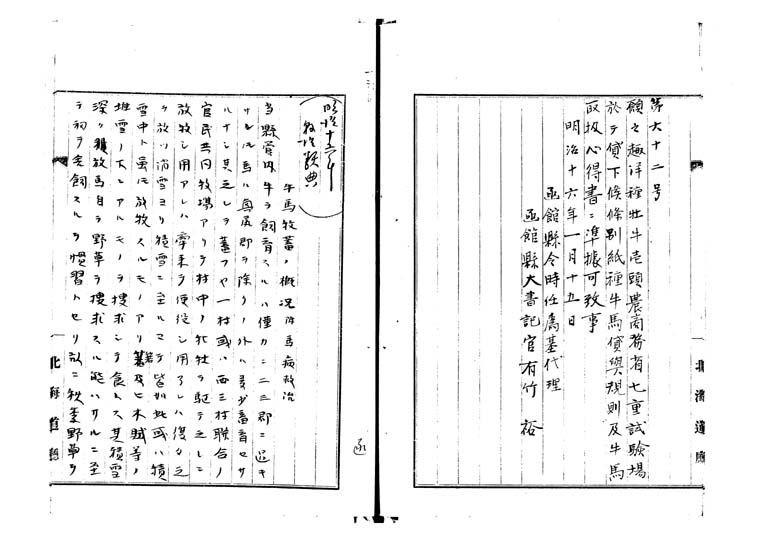 第六十二号
願之趣洋種牡牛壱頭農商務省七重試験場
於テ貸下候條別紙種牛馬貸與規則及牛馬
取扱心得書ニ準據可致事
明治十六年一月十五日
函館縣令時任為基代理
函館縣大書記官有竹 裕
北海道廳
函
明治十六年
牧畜類典
牛馬牧畜ノ概況并馬病救治
当縣管内牛ヲ飼育スルハ僅カニ二三郡ニ過キ
サルモ馬ハ 郡ヲ除クノ外ハ多少畜育セサ
ルナシ其之レヲ蓄フヤ一村或ハ両三村聯合ノ
官民共同牧場アリテ村中ノ牝牡ヲ駆テ之レニ
放牧シ用アレハ牽来テ使役シ用了レハ復タ之
ヲ放ツ消雪ヨリ積雪ニ至ルマテ皆如此或ハ積
雪中ト雖モ放牧スルモノアリ 及ヒ木賊等ノ
堆雪ノ下ニアルモノヲ捜求シテ食トス其積雪
深ク 放馬自ラ野草ヲ捜求スル能ハサルニ至
テ初テ舎飼スルヲ慣習トセリ故ニ秋季野草ヲ
北海道廳